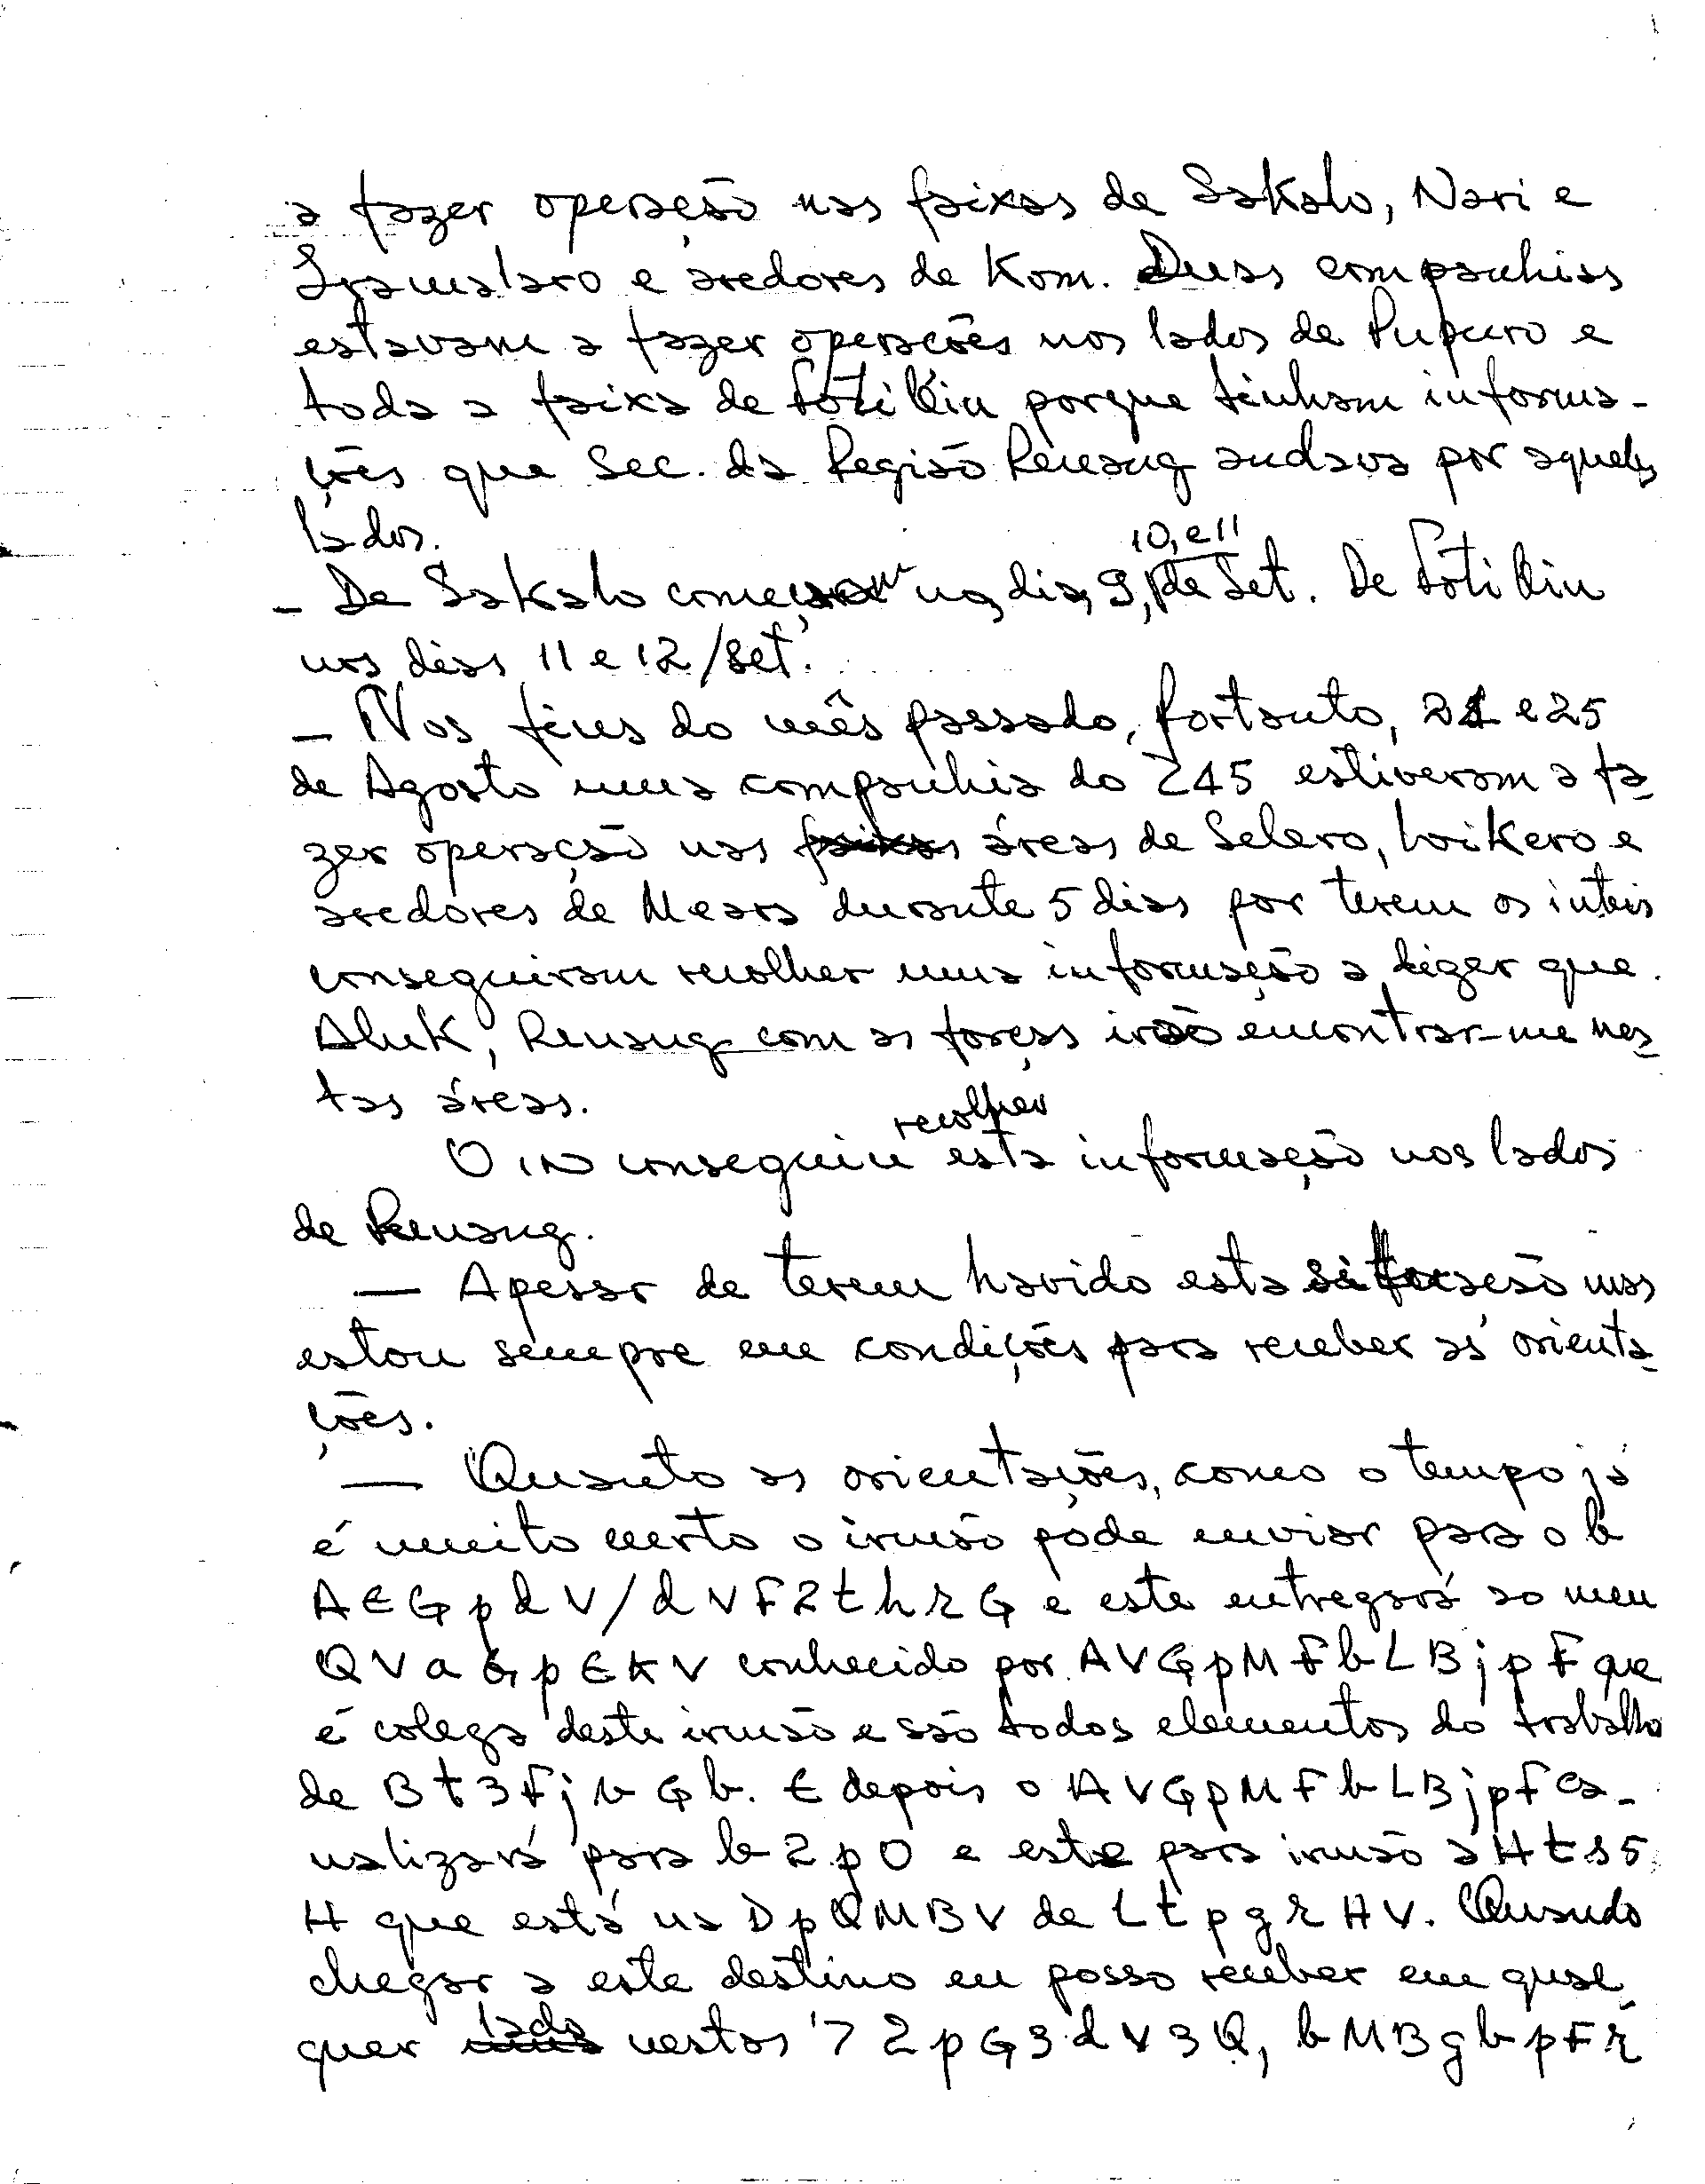 a fazer operação nas faixas de Sakato, Nari e
Iramalaro e aredores de Kom. Duas companhias
estavam a fazer operações nos lados de Pupuro e
toda a faixa de Lotikin porque tinham informa-
ções que Sec. da Região Renang andava por aqueles
lados.
- De Sakato começaram nos dias 9, 10, e 11 de Set. De Lotikin
nos dias 11 e 12/Set.
- Nos fins do mês passado, portanto, 24 e 25
de Agosto uma companhia do 745 estiveram a fa-
zer operação nas áreas de Selero, Loikero e
aredores de Meara durante 5 dias por terem os inteis
conseguiram recolher uma informação a dizer que
Aluk, Renang com as forças irão encontrar-me nes-
tas áreas.
O IN conseguiu recolher esta informação nos lados
de Renang.
- Apesar de terem havido esta situação mas
estou sempre em condições para receber as orienta-
ções.
- Quanto as orientações, como o tempo já
é muito curto o irmão pode enviar para o b
AEGpdV/dVF2thrG e este entregará ao meu
QVaGpEKV conhecido por AVGpMFbLBjpF que
é colega deste irmão e são todos elementos do trabalho
de Bt3FjvGb. E depois o AVGpMFbLBjpF ca-
nalizará para b2pO e este para irmão a Hts5
H que está na DpQMBV de LtpgrHV. Quando
chegar a este destino eu posso receber em qual-
quer lado nestas 72pG3dV3Q, bMBgbpFr